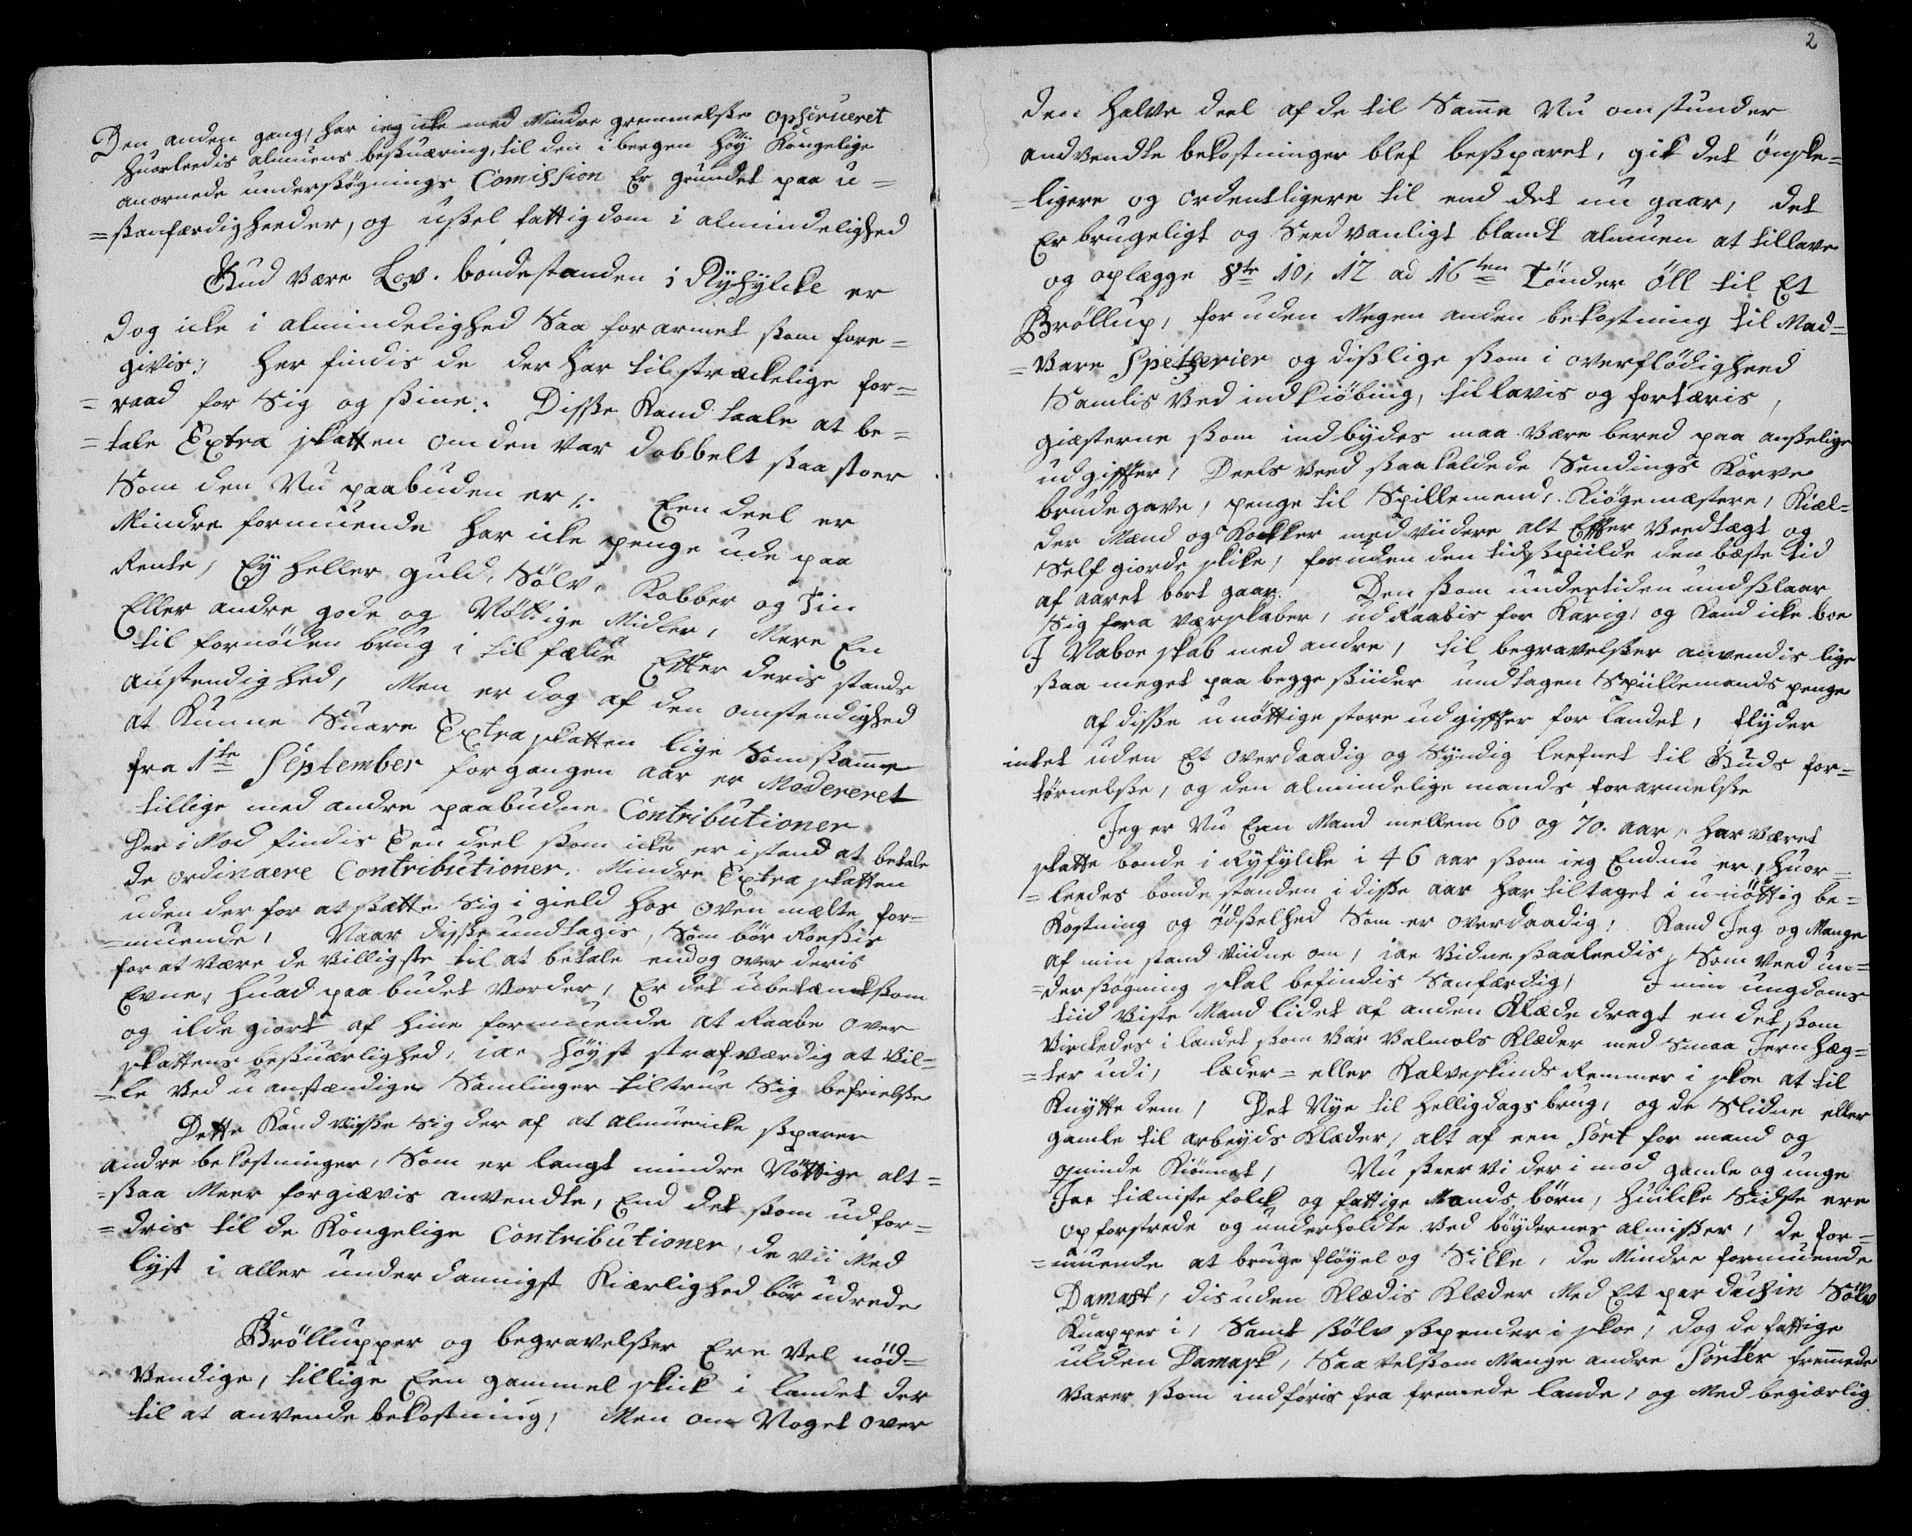 Den anden gang, har ieg icke med Mindre gremmelsse opserveret
huorleedis almuens besuæring, til den i bergen høy Kongelige
anornede undersøgnings Comission Er grundet paa u=
=sanfærdigheeder, og ussel fattigdom i almindelighed
Gud være Lov. bondestanden i Ryfylcke er
dog icke i almindelighed Saa forarmet som fore=
givis; her findis de der har tilstræckelige for=
=raad for Sig og sine. Disse Kand taale at be=
=tale Extra skatten om den var dobbelt saa stoer
Som den Nu paabuden er; Een deel er
Mindre formuende har icke penge ude paa
Rente, Ey heller guld, Sølv, Kobber og Tin
Eller andre gode og Nøttige Midler, Mere En
til fornøden brug i tilfælde Effter deris stands
anstendighed, Men er dog af den omstendighed
at Kunne Suare Extra skatten lige Som samme
fra 1ste September forgangen aar er Modereret
tillige med andre paabudne Contributioner
Der i Mod findis Een deel som icke er i stand at betale
de ordinaere Contributioner. Mindre Extra skatten
uden der for at sætte Sig i gield hos oven melte for=
=muende, Naar disse undtagis, Som bør Roessis
for at være de Villigste til at betale endog over deris
Evne, huad paa budet Vorder, Er det ubetænksom
og ilde giort af hine formuende at Raabe over
skattens besuærlighed, iae høyst strafværdig at vil=
=le Ved uanstændige Samlinger tiltrue Sig befrielse
Dette Kand visse sig der af at Almuen icke sparer
andre bekostninger, Som er langt mindre Nøttige alt=
=saa Meer forgiævis anvendte, End det som udfor=
=dris til de Kongelige Contributioner, de vii Med
lyst i aller underdannigst Kiærlighed bør udrede
Brøllupper og begravelser Ere vel nød=
vendige, tillige Een gammel skick i landet der
til at anvende bekostning, Men om Noget over
2
den halve deel af de til Samme Nu omstunder
andvendte bekostninger blef besparet, gik det ønske=
=ligere og ordentligere til end det nu gaar, det
Er brugeligt og Seedvanligt blandt almuen at tillave
og oplægge 8te 10, 12 ad 16ten Tønder öll til Et
Brøllup, for uden Megen anden bekostning til Mad=
=Vare Spetzerier og disslige som i overflødigheed
Samlis Ved indkiøbing, tillavis og fortæris,
giæsterne som indbydes maa være bered paa anselige
udgiffter, Deels Veed saa kaldede Sendings Korve
brudegave, penge til Spillemend, Kiøgemæstere, Kiæl=
der Mænd og Kokker med viidere alt Effter Veedtægt og
Self giorde skike, foruden den tidsspiilde den bæste tid
af aaret bort gaar. Den som undertiden undslaar
Sig fra værskaber, udRaabis for Karig, og Kand icke boe
I Naboeskab med andre, til begravelser anvendis lige
saa meget paa begge siider undtagen Spillemands penge
af disse unøttige store udgiffter for landet, flyder
intet uden Et overdaadig og Syndig leefnet til Guds for=
tørnelse, og den almindelige mands forarmelse
Jeg er Nu Een Mand mellem 60 og 70. aar, har været
skatte bonde i Ryfylcke i 46 aar som ieg Endnu er, huor=
=leedes bonde standen i disse aar har tiltaget i unøttig be=
Kostning og ødselhed Som er overdaadig, Kand Jeg og Mange
af min stand Viidne om, iae Vidne saaleedis, Som Veed un=
=dersøgning skal befindis Sanfærdig, I min ungdoms
tiid Viste Mand lidet af anden Klædedragt en det som
Virckedes i landet som Var Valmols Klæder med Smaa Jern hæg=
=ter udi, læder= eller Kalveskinds Remmer i skoe at til
Knytte dem, Det Nye til helligdags brug, og de Slidne eller
gamle til arbeyds Klæder, alt af een Sort for mand og
qvinde Kiønnet, Nu seer Vi der i mod gamle og unge
Jae tieniste folck og fattige Mands børn, huilcke Sidste ere
opforstrede og underholdte Ved bøydernes almisser, de for=
=muende at bruge fløyel og Silke, de Mindre formuende
Damast, disuden Klædis Klæder Med Et par dusin Sølv
Knapper i, Samt sølv spender i skoe, dog de fattige
ulden Damask, Saa velsom Mange andre Sorter fremmede
Varer som indføris fra fremmede lande, og Med begiærlig